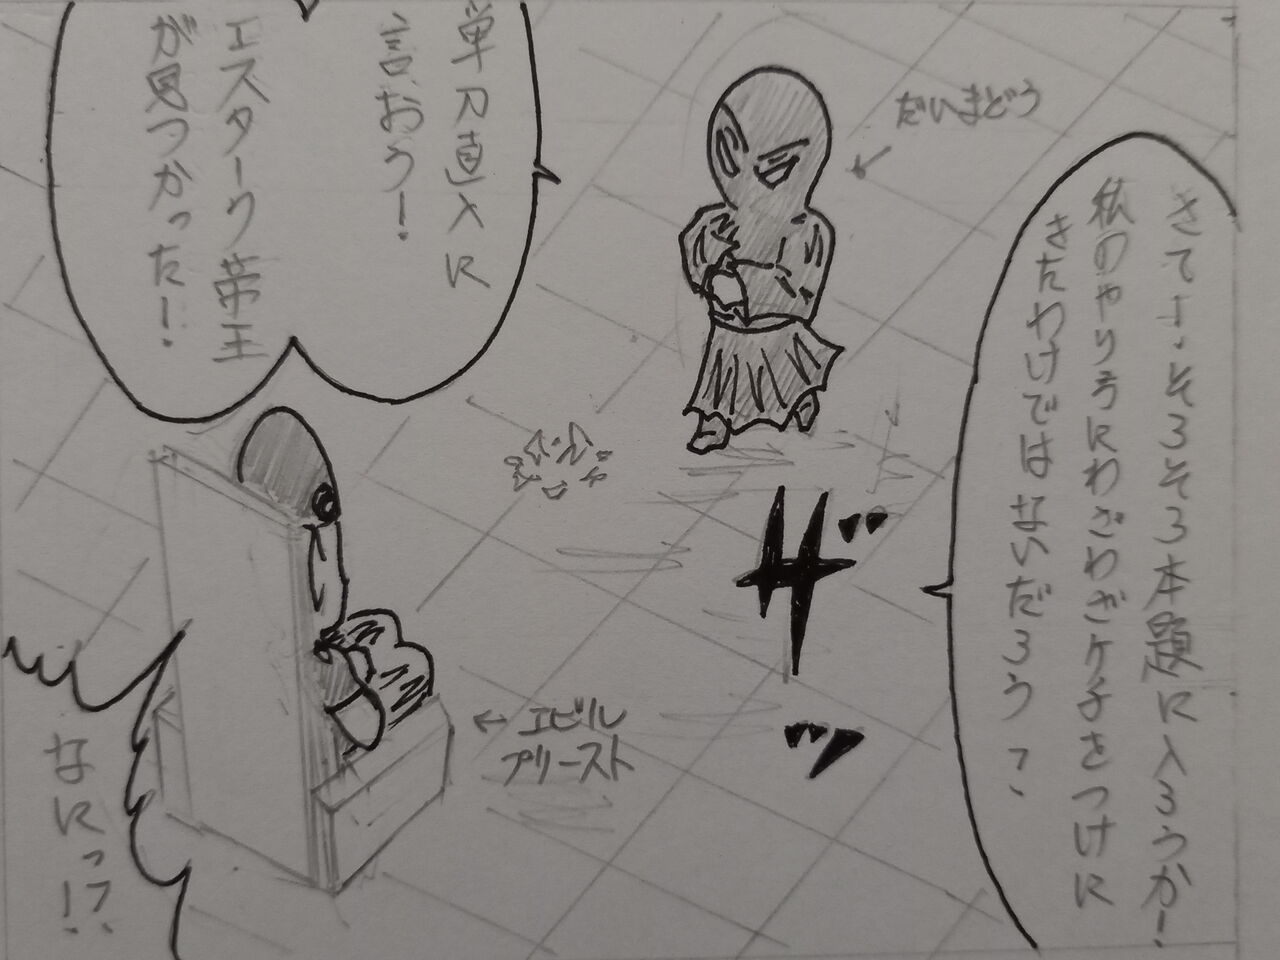 さて…そろそろ本題に入ろうか!
私のやりようにわざわざケチをつけに
きたわけではないだろう?
だいまどう
ザッ
単刀直入に
言おう!
エスターク帝王
が見つかった!
エビル
プリースト
なにっ!?